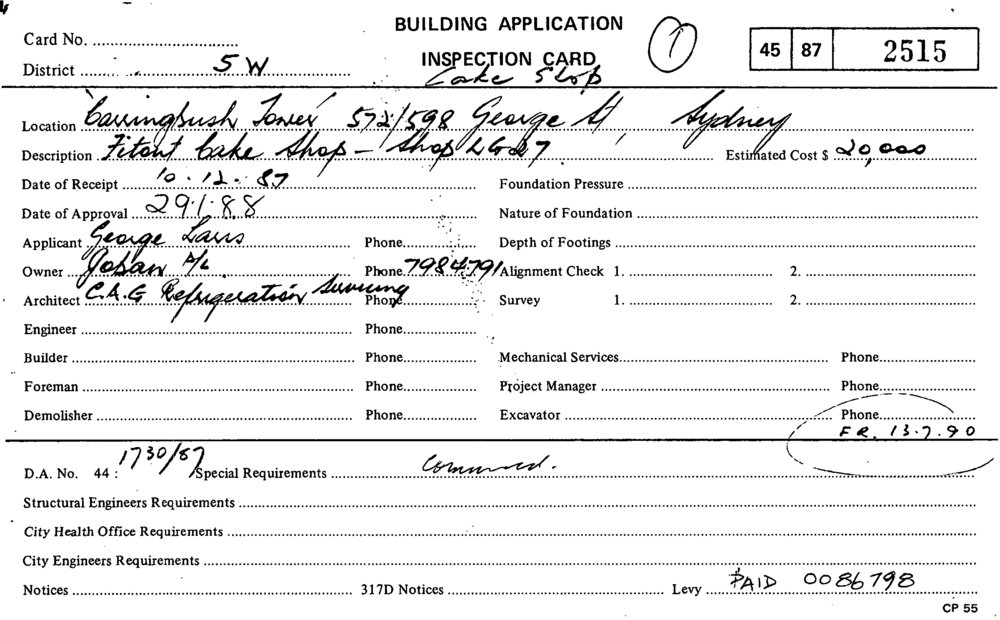 BUILDING APPLICATION
Card No. 1
45 87 2515
District 5 W INSPECTION CARD
Cake Shop
Location 'Carringbush Tower' 572/598 George St, Sydney
Description Fitout Cake Shop - Shop LG27 Estimated Cost $ 20,000
Date of Receipt 10.12.87 Foundation Pressure
Date of Approval 29.1.88 Nature of Foundation
Applicant George Phone Depth of Footings
Owner P/L Phone 7984791 Alignment Check 1. 2.
Architect C.A.G Refrigeration Servicing Phone Survey 1. 2.
Engineer Phone
Builder Phone Mechanical Services Phone
Foreman Phone Project Manager Phone
Demolisher Phone Excavator Phone
F.R. 13.7.90
D.A. No. 44: 1730/87 Special Requirements Commenced.
Structural Engineers Requirements
City Health Office Requirements
City Engineers Requirements
Notices 317D Notices Levy PAID 0086798
CP 55